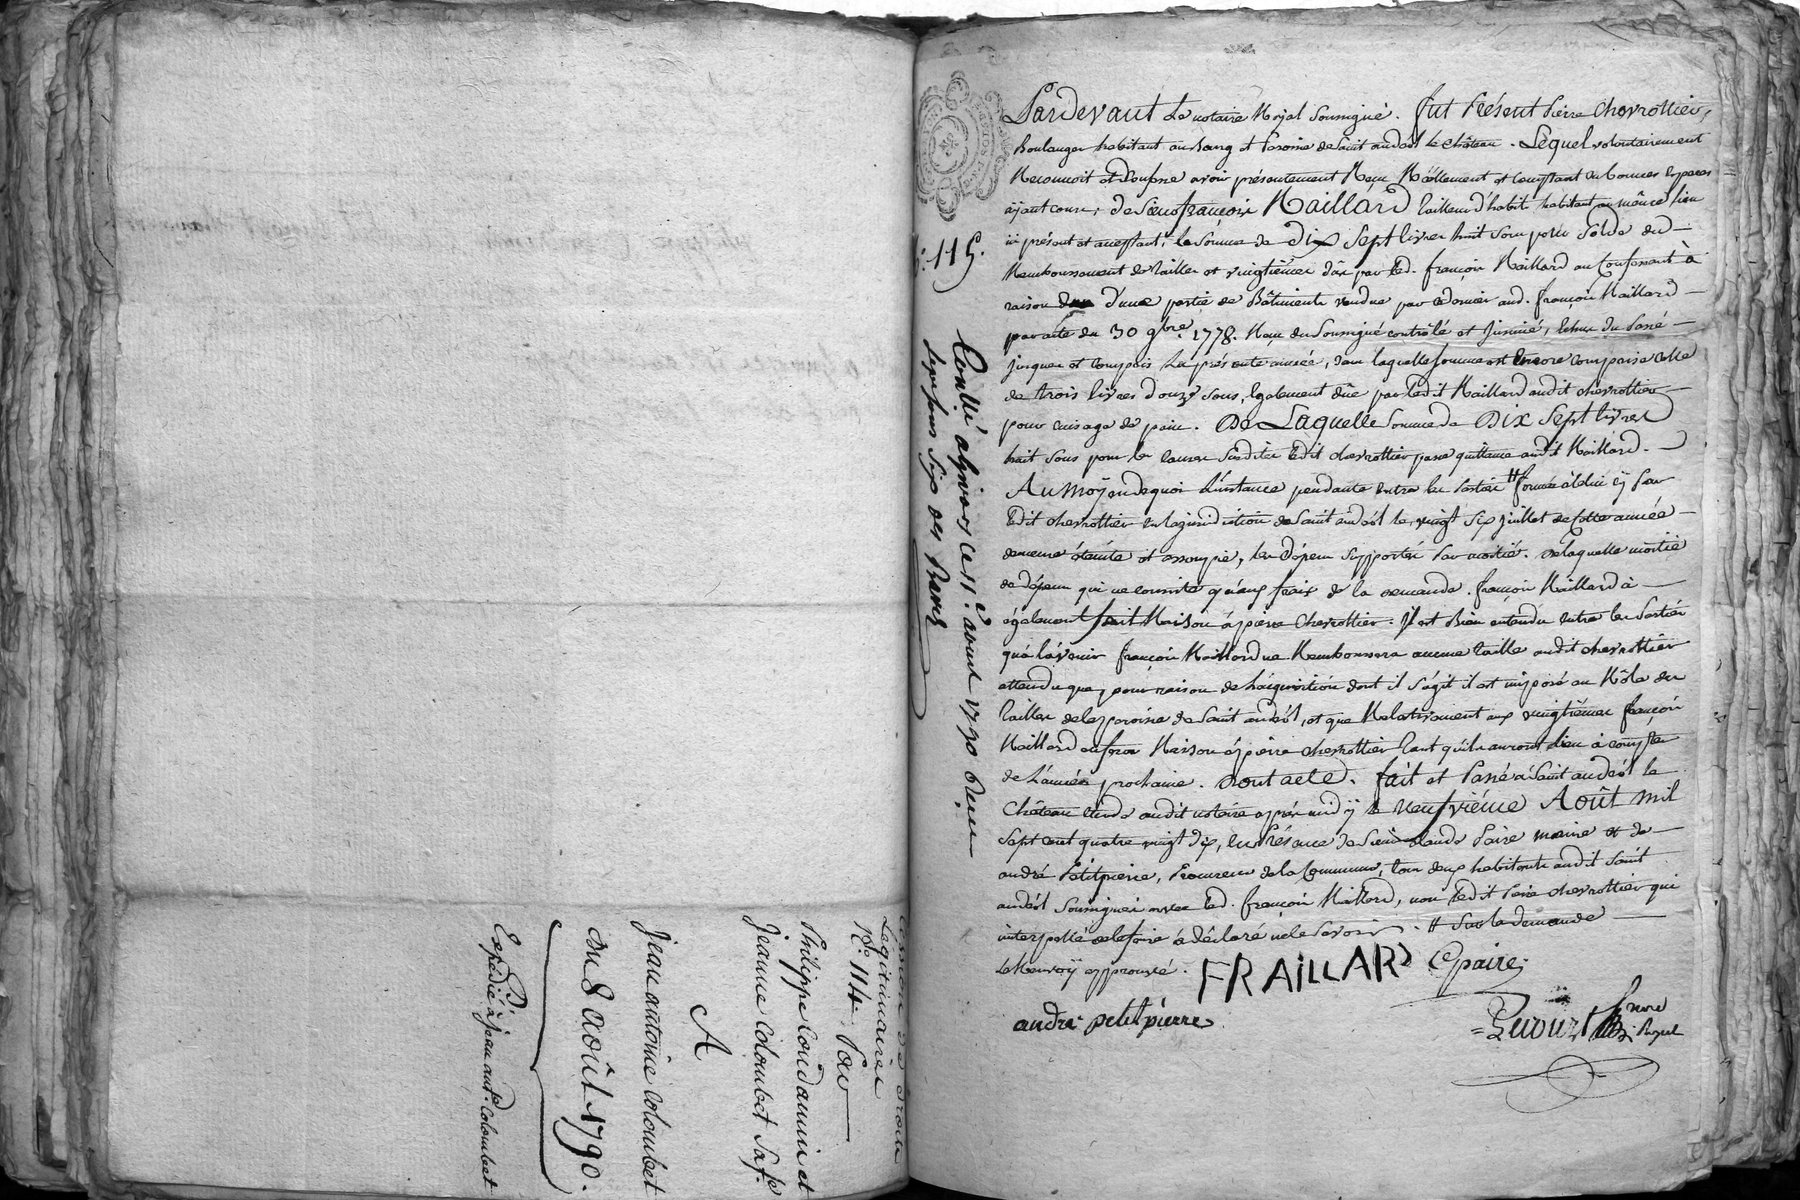 Cession de droits
Légitimaires
N.º 114. Par
Philippe Coudamin et
Jeanne Colombet Sa fe.
A
Jean antoine Colombet
Du 8 août 1790.
Expédié à jean ant.e Colombet
N.º 115.
Conllé a givors ce 11.e aoust 1790 Reçu
quinze sous six des
Pardevant Le notaire Royal Soussigné. fut Présent Pierre Chevrottier,
Boulanger habitant au Bourg et Paroisse de Saint andéol le Château. Lequel volontairement
Reconnoit et Confesse avoir présentement Reçu Réellement et Comptant en bonnes Espèces
aÿant cours, de Sieur françois Raillard tailleur d'habits habitant au même lieu
ici présent et acceptant, la Somme de Dix Sept livres huit Sous pour Solde du
Remboursement de tailles et vingtièmes dûs par led. françois Raillard au Confessant à
raison d'une partie de Bâtiments vendue par ce dernier aud. françois Raillard
par acte du 30 9bre. 1778. Reçu du Soussigné contrôlé et Insinué, lesdus du Passé
jusques et compris la présente année, dans laquelle Somme est Encore comprise celle
de trois livres douze sous, Également dûe par ledit Raillard audit chevrottier
pour cuisage de pain. De Laquelle Somme de Dix Sept livres
huit Sous pour les causes Susdites ledit chevrottier passe quittance audit Raillard.
Au Moÿen de quoi L'instance pendante entre les Parties # formée à celui cÿ Par
ledit chevrottier en la juridiction de Saint andéol le vingt Six juillet de Cette année
demeure éteinte et assoupie, les dépens Supportés Par moitié. de laquelle moitié
de dépens qui ne consiste qu'aux fraix de la demande. françois Raillard à
également fait Raison à pierre Chevrottier. Il est Bien entendu entre les Parties
qu'à l'avenir françois Raillard ne Remboursera aucune taille audit chevrottier
attendu que, pour raison de l'acquisition dont il s'agit il est imposé au Rôle des
tailles de la paroisse de Saint andéol, et que Relativement aux vingtièmes françois
Raillard en fera Raison à pierre chevrottier tant qu'ils auront lieu à compter
de L'année prochaine. Dont acte. fait et Passé à Saint andéol le
Château Etude dudit notaire après midÿ le neufvième Août mil
Sept cent quatre vingt dix, En Présence de Sieur Claude Paire maire et de
andré Petitpierre, Procureur de la Commune, tous deux habitants audit Saint
andéol Soussignés avec led. françois Raillard, non ledit Pierre chevrottier qui
interpellé de le faire à déclaré ne le Savoir. # Sur la demande
Le Renvoÿ approuvé.
FRAILLARD Cpaire
andré petitpierre